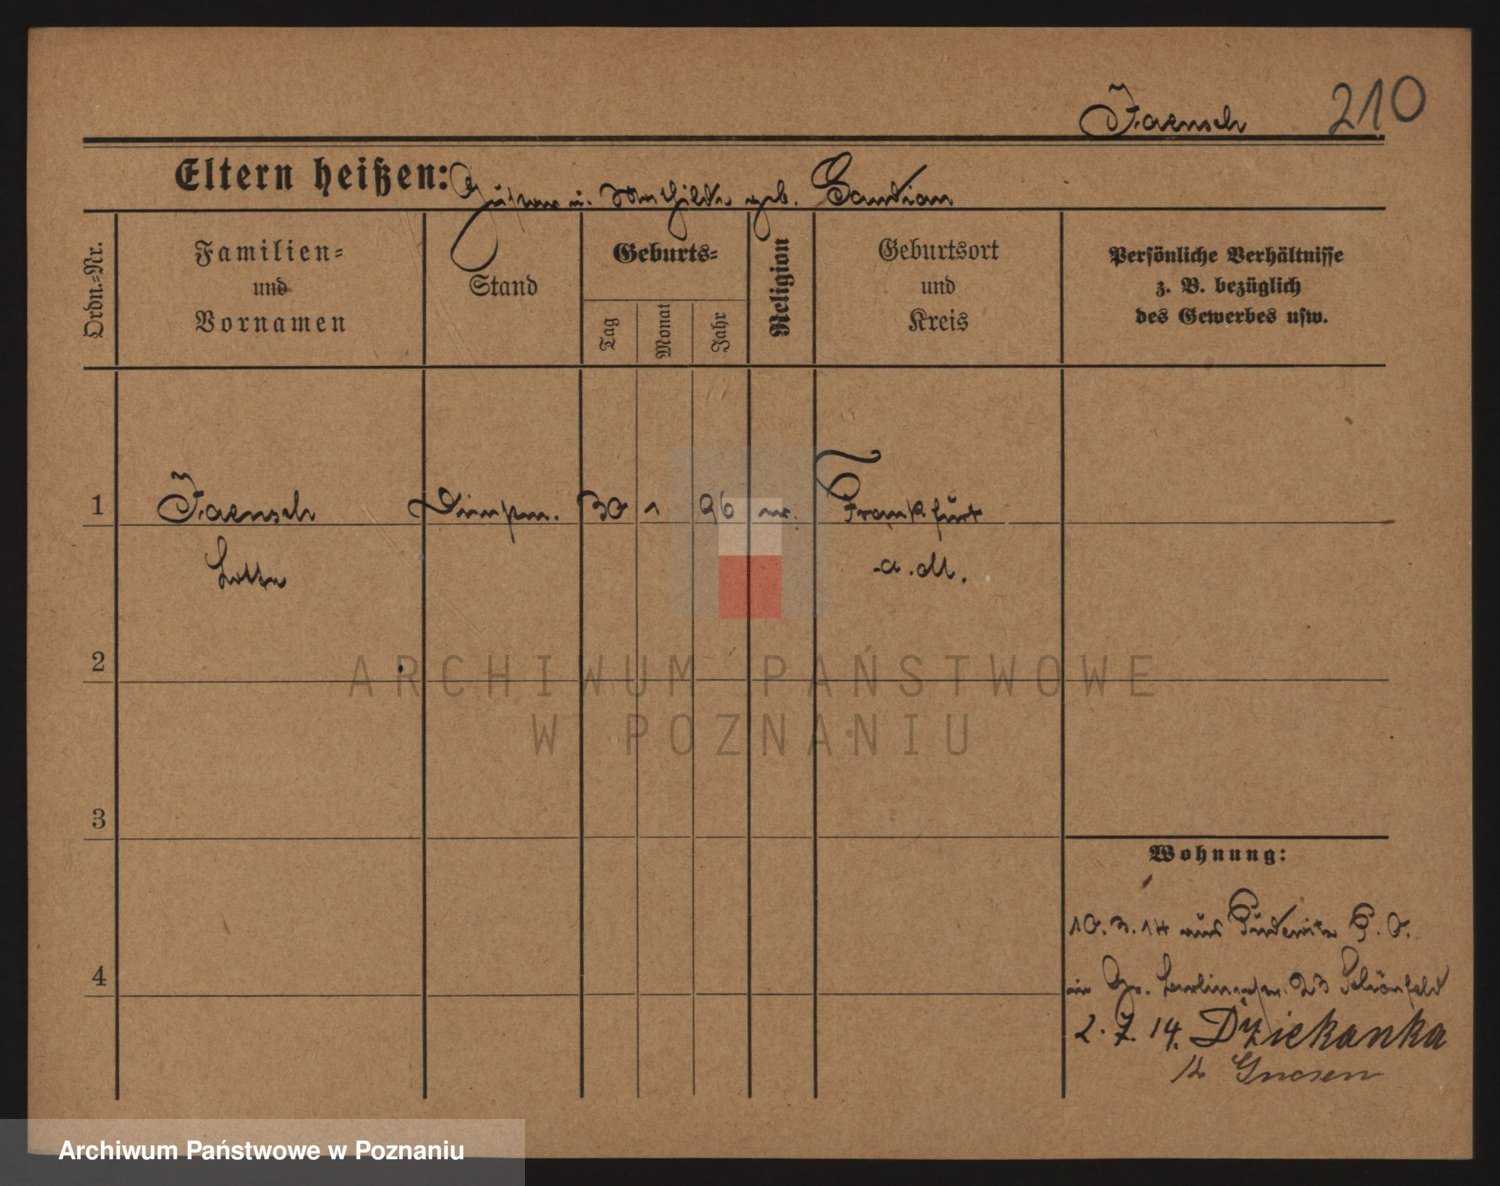 Jaensch 210
Eltern heißen: Gustav u. Mathilde geb. Gandian
Ordn.-Nr.
Familien-
und
Vornamen
Stand
Geburts-
Tag
Monat
Jahr
Religion
Geburtsort
und
Kreis
Persönliche Verhältnisse
z. B. bezüglich
des Gewerbes usw.
1 Jaensch 30 1 96 Frankfurt
Lotte a. M.
2
ARCHIWUM PAŃSTWOWE
W POZNANIU
3
Wohnung:
10.3.14 aus Pudewitz P.O.
4
Gr. Berlinerstr. 23 Schönfeld
2. 7. 14. Dziekanka
b. Gnesen
Archiwum Państwowe w Poznaniu